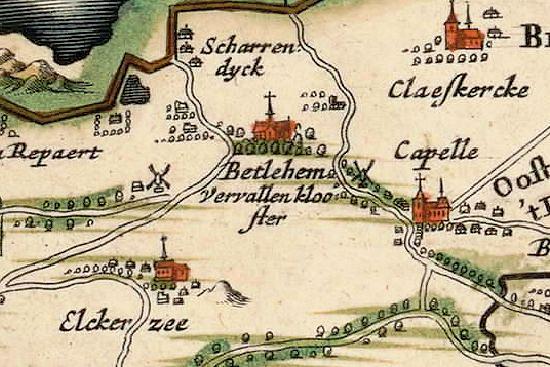 Scharren
dyck
Claeskercke
Repaert
Betlehem
vervallen kloo
ster
Capelle
Oost
't
Elckerzee